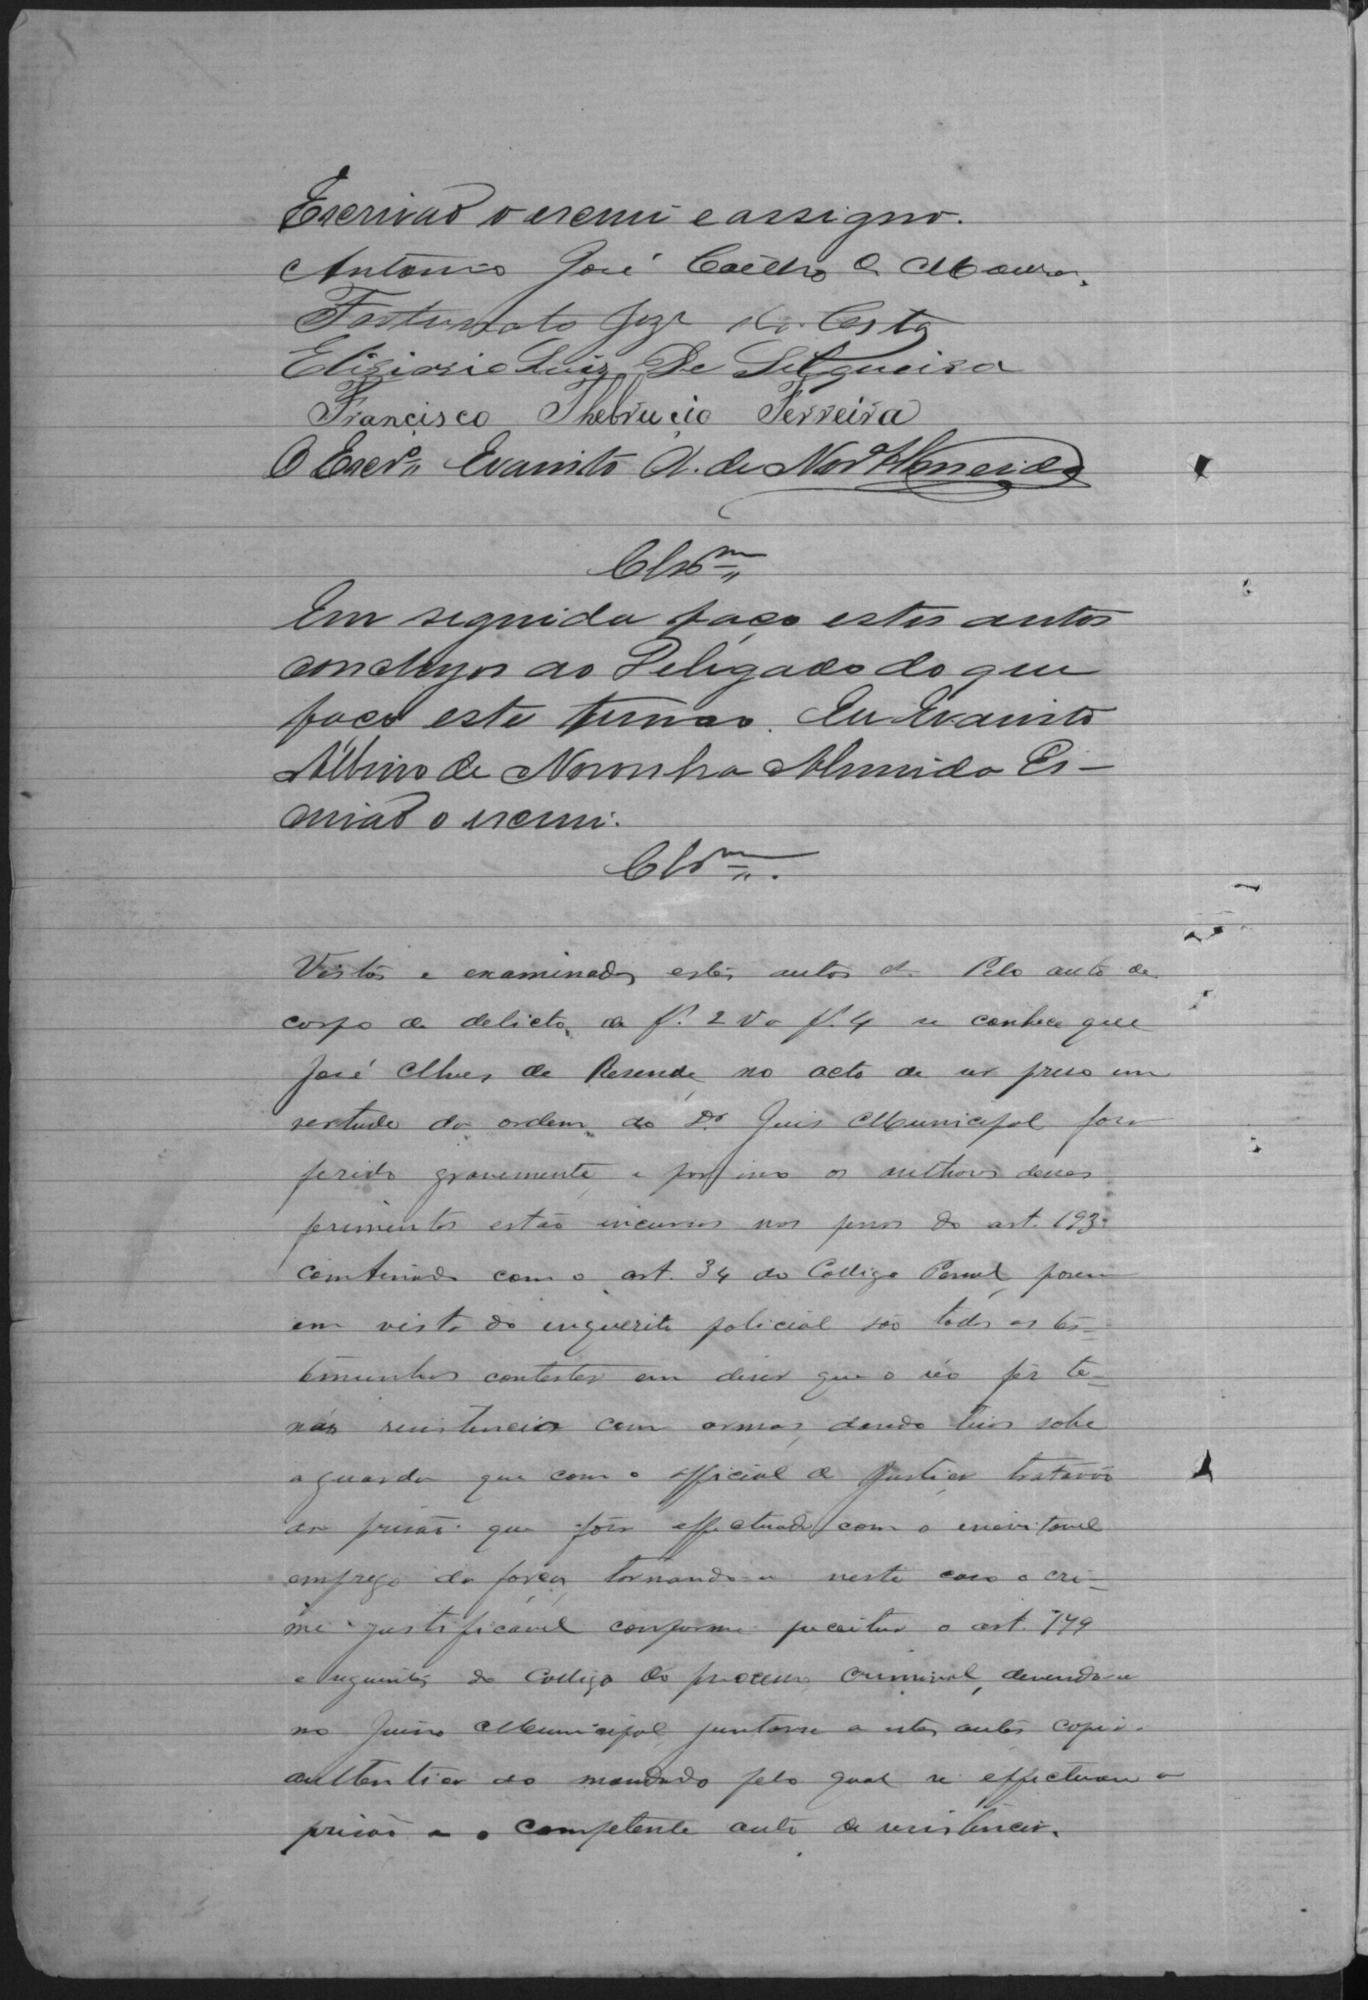 Escrivão o escrevi e assigno.
Antonio José Coêlho de Moura.
Fortunato Joze da Costa
Elisiario Luiz De Silqueira
Francisco Thebrucio Ferreira
O Escr.º Evaristo A. de Nor.ª Almeida
Clsº.ᵐ
Em seguida faço estes autos
conclusos ao Delegado do que
faço este termo. Eu Evaristo
Albino de Noronha Almeida Es-
crivão o escrevi.
Clsº.ᵐ
Vistos e examinados estes autos &. Pelo auto de
corpo de delicto, de f. 2 v a f. 4 se conhece que
José Alves de Resende, no acto de ser preso em
vertude da ordem do Dr. Juis Municipal fora
ferido gravemente, e por isso os authores desses
ferimentos estão incursos nas penas do art. 193
combinado com o art. 34 do Codigo Penal, porem
em vista do inquerito policial são todas as tes-
temunhas contestes em diser que o réo fes te-
nás resistencia com armas, dando tiros sobre
a guarda que com o official de Justiça tratavão
da prisão que fôra effectuada com o inevitavel
emprego da força, tornando-se neste caso o cri-
me justificavel conforme preceitua o art. 179
e seguintes do Codigo do processo criminal, devendo-se
no Juiso Municipal juntarse a estes autos copia
authentica do mandado pelo qual se effectuou a
prisão e o competente auto de resistencia.